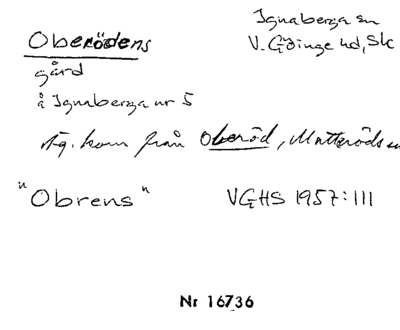 Oberödens
Ignaberga sn
V. Göinge hd, Sk
gård
å Ignaberga nr 5
Äg. kom från Oberöd, Matteröds sn
"Obrens"
VGHS 1957:III
Nr 16736